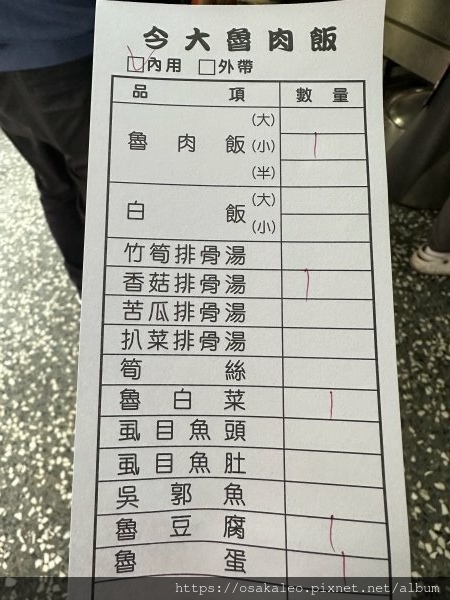 今大魯肉飯
內用 外帶
品項 數量
魯肉飯 (大)
(小)
(半)
白飯 (大)
(小)
竹筍排骨湯
香菇排骨湯
苦瓜排骨湯
扒菜排骨湯
筍絲
魯白菜
虱目魚頭
虱目魚肚
吳郭魚
魯豆腐
魯蛋
https://osakaleo.pixnet.net/album